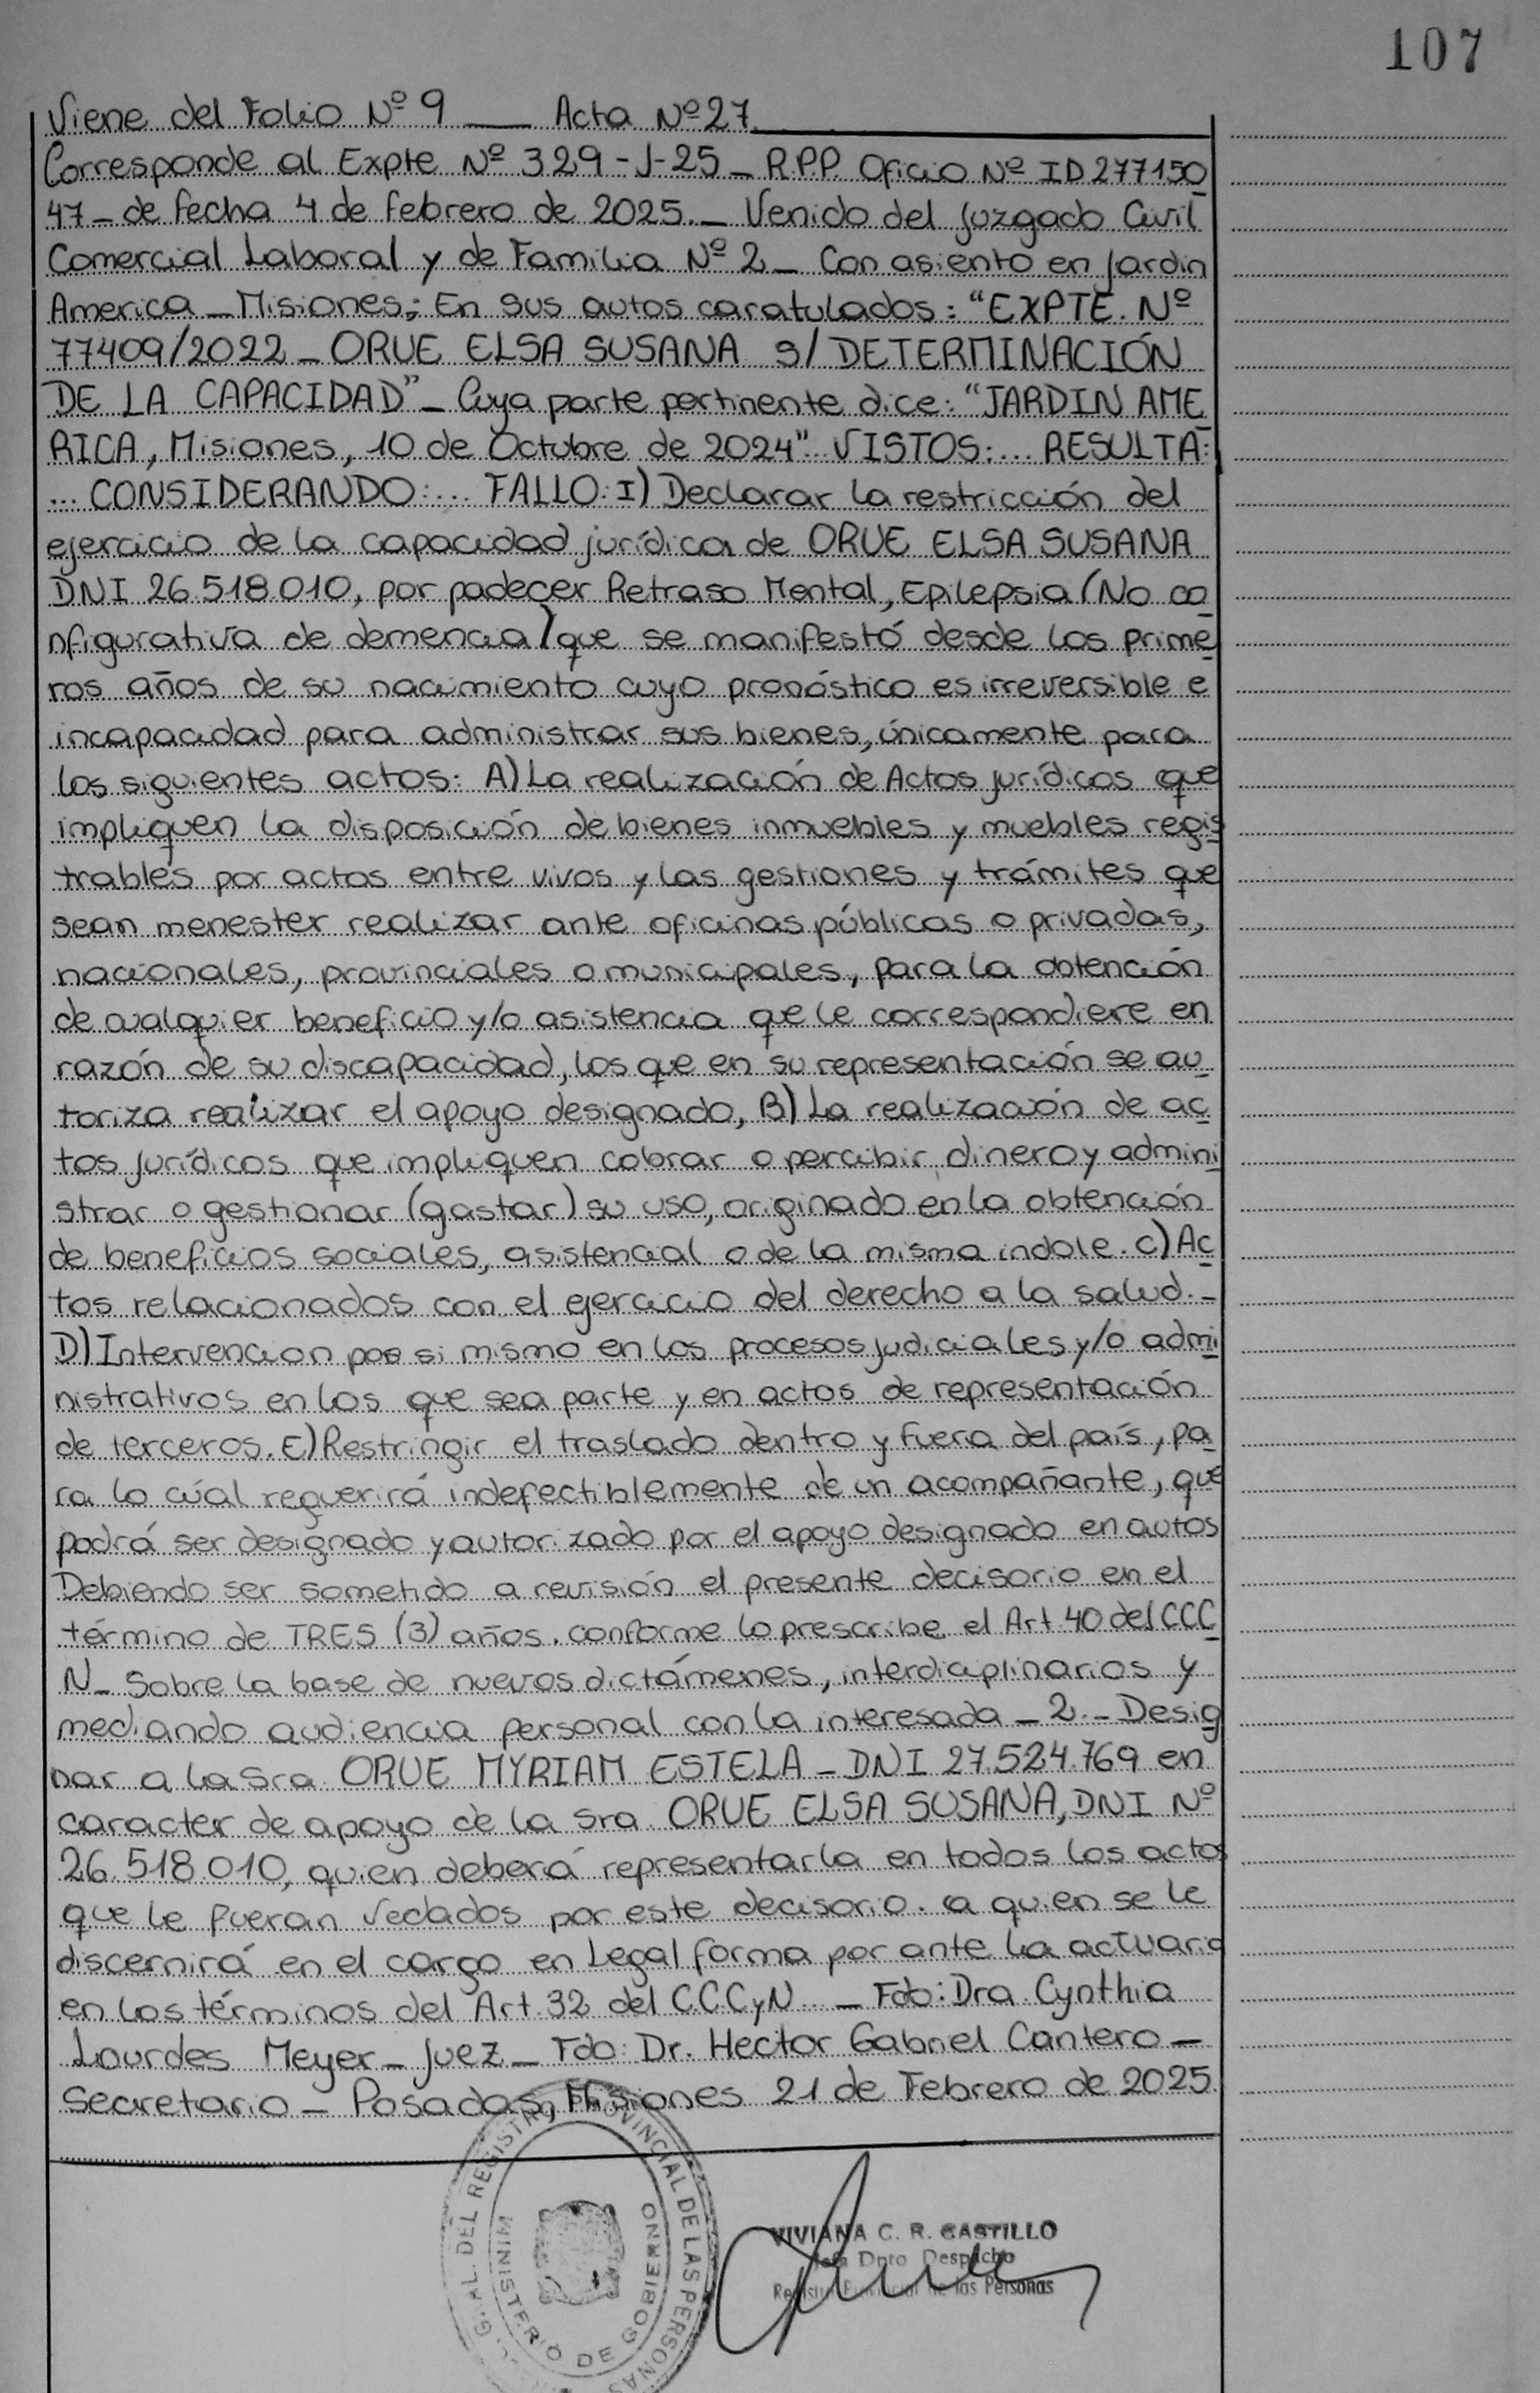 107
Viene del Folio Nº 9 ___ Acta Nº 27
Corresponde al Expte Nº 329-J-25 _ R.P.P. Oficio Nº ID 277150
47 _ de fecha 4 de febrero de 2025._ Venido del Juzgado Civil
Comercial Laboral y de Familia Nº 2 _ Con asiento en Jardin
America _ Misiones; En sus autos caratulados: "EXPTE. Nº
77409/2022 _ ORUE ELSA SUSANA S/ DETERMINACIÓN
DE LA CAPACIDAD" _ Cuya parte pertinente dice: "JARDIN AME
RICA, Misiones, 10 de Octubre de 2024" ... VISTOS: ... RESULTA:
... CONSIDERANDO: ... FALLO: I) Declarar la restricción del
ejercicio de la capacidad jurídica de ORUE ELSA SUSANA
DNI 26.518.010, por padecer Retraso Mental, Epilepsia (No co
nfigurativa de demencia) que se manifestó desde los prime
ros años de su nacimiento cuyo pronóstico es irreversible e
incapacidad para administrar sus bienes, únicamente para
los siguientes actos: A) La realización de Actos jurídicos que
impliquen la disposición de bienes inmuebles y muebles regis
trables por actos entre vivos y las gestiones y trámites que
sean menester realizar ante oficinas públicas o privadas,
nacionales, provinciales o municipales, para la obtención
de cualquier beneficio y/o asistencia que le correspondiere en
razón de su discapacidad, los que en su representación se au
toriza realizar el apoyo designado, B) La realización de ac
tos jurídicos que impliquen cobrar o percibir dinero y admini
strar o gestionar (gastar) su uso, originado en la obtención
de beneficios sociales, asistencial o de la misma indole. C) Ac
tos relacionados con el ejercicio del derecho a la salud._
D) Intervencion por si mismo en los procesos judiciales y/o admi
nistrativos en los que sea parte y en actos de representación
de terceros. E) Restringir el traslado dentro y fuera del país, pa
ra lo cúal requerirá indefectiblemente de un acompañante, que
podrá ser designado y autorizado por el apoyo designado en autos
Debiendo ser sometido a revisión el presente decisorio en el
término de TRES (3) años. conforme lo prescribe el Art. 40 del CCC
N_ Sobre la base de nuevos dictámenes, interdiciplinarios y
mediando audiencia personal con la interesada _ 2._ Desig
nar a la Sra ORUE MYRIAM ESTELA _ DNI 27.524.769 en
caracter de apoyo de la Sra. ORUE ELSA SUSANA, DNI Nº
26.518.010, quien deberá representarla en todos los actos
que le fueran vedados por este decisorio. a quien se le
discernirá en el cargo en Legal forma por ante la actuaria
en los términos del Art. 32 del C.C.CyN _ Fdo: Dra. Cynthia
Lourdes Meyer _ Juez _ Fdo: Dr. Hector Gabriel Cantero _
Secretario _ Posadas, Misiones 21 de Febrero de 2025.
GRAL. DEL REGISTRO PROVINCIAL DE LAS PERSONAS
MINISTERIO DE GOBIERNO
VIVIANA C. R. CASTILLO
Jefa Dpto Despacho
Registro Provincial de las Personas